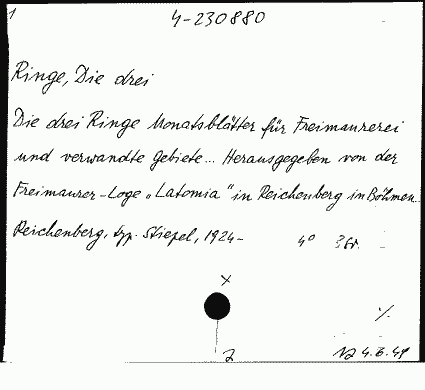 1
4-230880
Ringe, Die drei
Die drei Ringe Monatsblätter für Freimaurerei
und verwandte Gebiete... Herausgegeben von der
Freimaurer-Loge „Latomia" in Reichenberg in Böhmen.
Reichenberg, typ. Stiepel, 1924- 4°
x
%
2 4.6.49